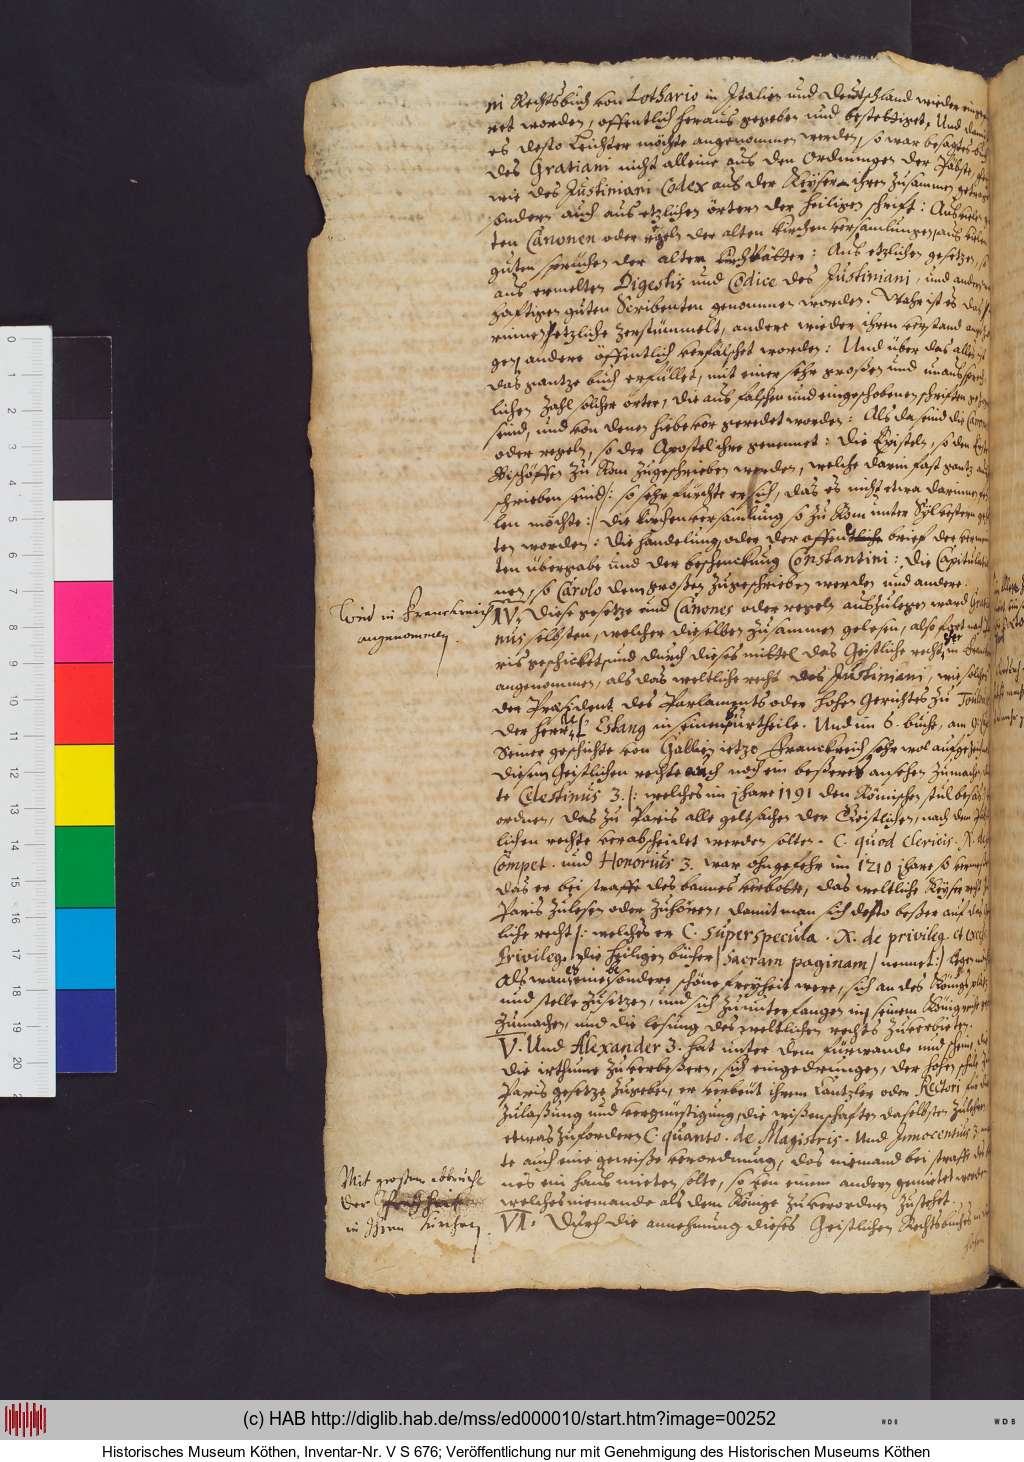 ni Rechtsbuch von Lothario in Italien und Deutschland wieder
ret worden, offentlich heraus gegeben und bestettiget. Und damit
es desto leichter möchte angenommen werden, so war besagtes
des Gratiani nicht alleine aus den Ordnungen der Päbste,
wie des Justiniani Codex aus der Keyser ihren zusammen
sondern auch aus etzlichen örtern der heiligen schrift: Aus vielen
ten Canonen oder regeln der alten kirchenversamlungen, aus vielen
guten sprüchen der alten kirchväter: Aus etzlichen gesetzen, so
aus ermelten Digestis und Codice des Justiniani, und andern
haftigen guten Scribenten genommen worden. Wahr ist es das
rinnen etzliche zerstümmelt, andere wieder ihren verstand
gen, andere öffentlich verfälschet worden: Und über das alles ist
das gantze buch erfüllet, mit einer sehr großen und unaussprech
lichen zahl solcher örter, die aus falschen und eingeschobenen schriften
seind, und von denen hiebevor geredet worden: Als da seind die Canones
oder regeln, so der Apostel ihre genennet: Die Episteln, so den
Bischöffen zu Rom zugeschrieben werden, welche darin fast gantz
schrieben seind/: so sehr furchte er sich, das es nicht etwa darinnen
len möchte:/ die kirchenversamlung so zu Rom unter Sylvestern
ten worden: die handelung oder der offene brief der
ten übergabe und der beschenckung Constantini: die Capitularien
nen, so Carolo dem großen zugeschrieben werden und andere.
Wird in Franckreich
angenommen.
IV. Diese gesetze und Canones oder regeln auszulegen ward Grati
nus selbsten, welcher dieselben zusammen gelesen, also fort nach
ris geschicket, und durch dieses mittel das Geistliche recht in
angenommen, als das weltliche recht des Justiniani, wie solches
der Præsident des Parlaments oder hohen Gerichtes zu
der herr Estang in seinen urtheile. Und im 6. buche, am
Seiner geschichte von Gallien ietzo Franckreich sehr wol
diesem Geistlichen rechte auch noch ein beßeres ansehen zumachen,
te Celestinus 3. /: welches im jhare 1191 den Römischen stul
ordnen, das zu Paris alle geltsachen der Geistlichen, nach dem
lichen rechte verabscheidet werden solten. C. quod Clericis. X. de
Compet. und Honorius 3. war ohngefehr im 1210 jhare so
das er bei straffe des bannes verbotte, das weltliche Keyserrecht
Paris zulesen oder zuhören, damit man sich desto beßer auf das
liche recht /: welches er C. super specula. X. de privileg. et
Privileg. die heiligen bücher / sacram paginam / nennet:/
Als wan es eine besondere schöne freyheit were, sich an des Königs platz
und stelle zusetzen, und sich zuunterfangen in seinem Königreiche
zumachen, und die lesung des weltlichen rechts zuverbieten.
V. Und Alexander 3. hat unter dem fürwande und schein,
die irthume zuverbeßern, sich eingedrungen, der hohen schule zu
Paris gesetze zugeben, er verbeut ihrem Cantzler oder Rectori für die
zulaßung und vergünstigung, die wißenschaften daselbsten zulehren
etwas zufordern C. quanto. de Magistris. Und Innocentius 3.
te auch eine gewiße verordnung, das niemand bei straffe des
nes ein haus mieten solte, so von einem andern gemietet worden
welches niemande als dem Könige zuverordnen zustehet.
Mit großem abbruche
der
in Ihren kirchen.
VI. Durch die annehmung dieses Geistlichen Rechtsbuches
(c) HAB http://diglib.hab.de/mss/ed000010/start.htm?image=00252
Historisches Museum Köthen, Inventar-Nr. V S 676; Veröffentlichung nur mit Genehmigung des Historischen Museums Köthen